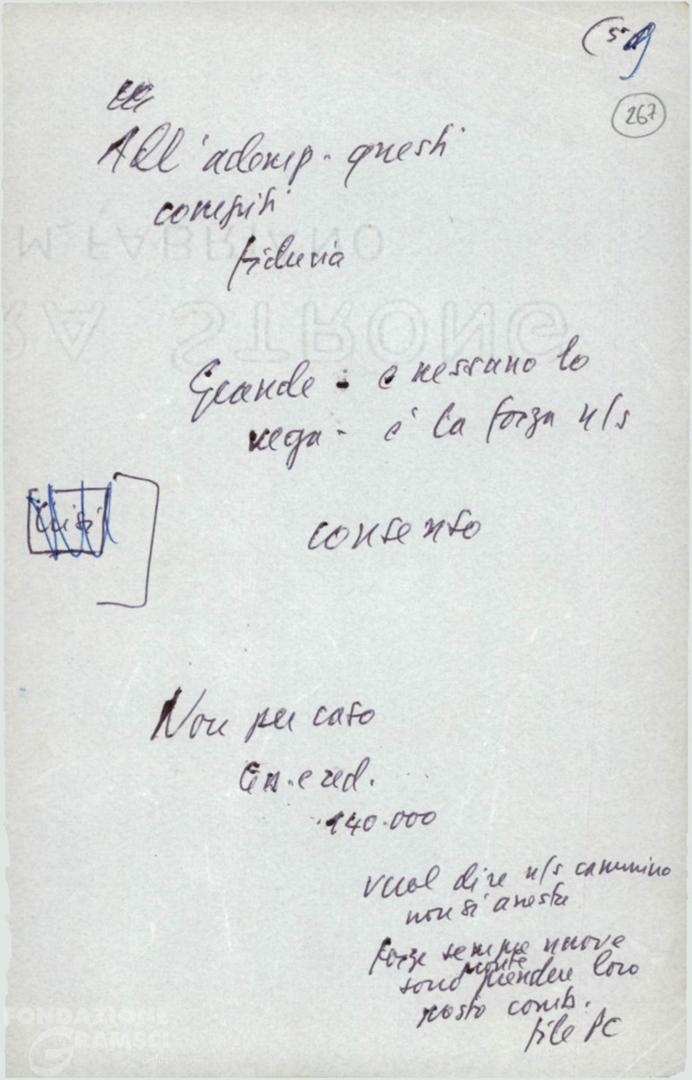 (5
267
All'ademp. questi
compiti
fiducia
M. FABRIANO
RA STRONG
Grande - e nessuno lo
nega - è la forza n/s
consenso
Crisi
Non per caso
Gn. e red.
140.000
vuol dire n/s cammino
non si arresta
forze sempre nuove
pronte
sono prendere loro
posto comb.
file PC
FONDAZIONE
GRAMSCI